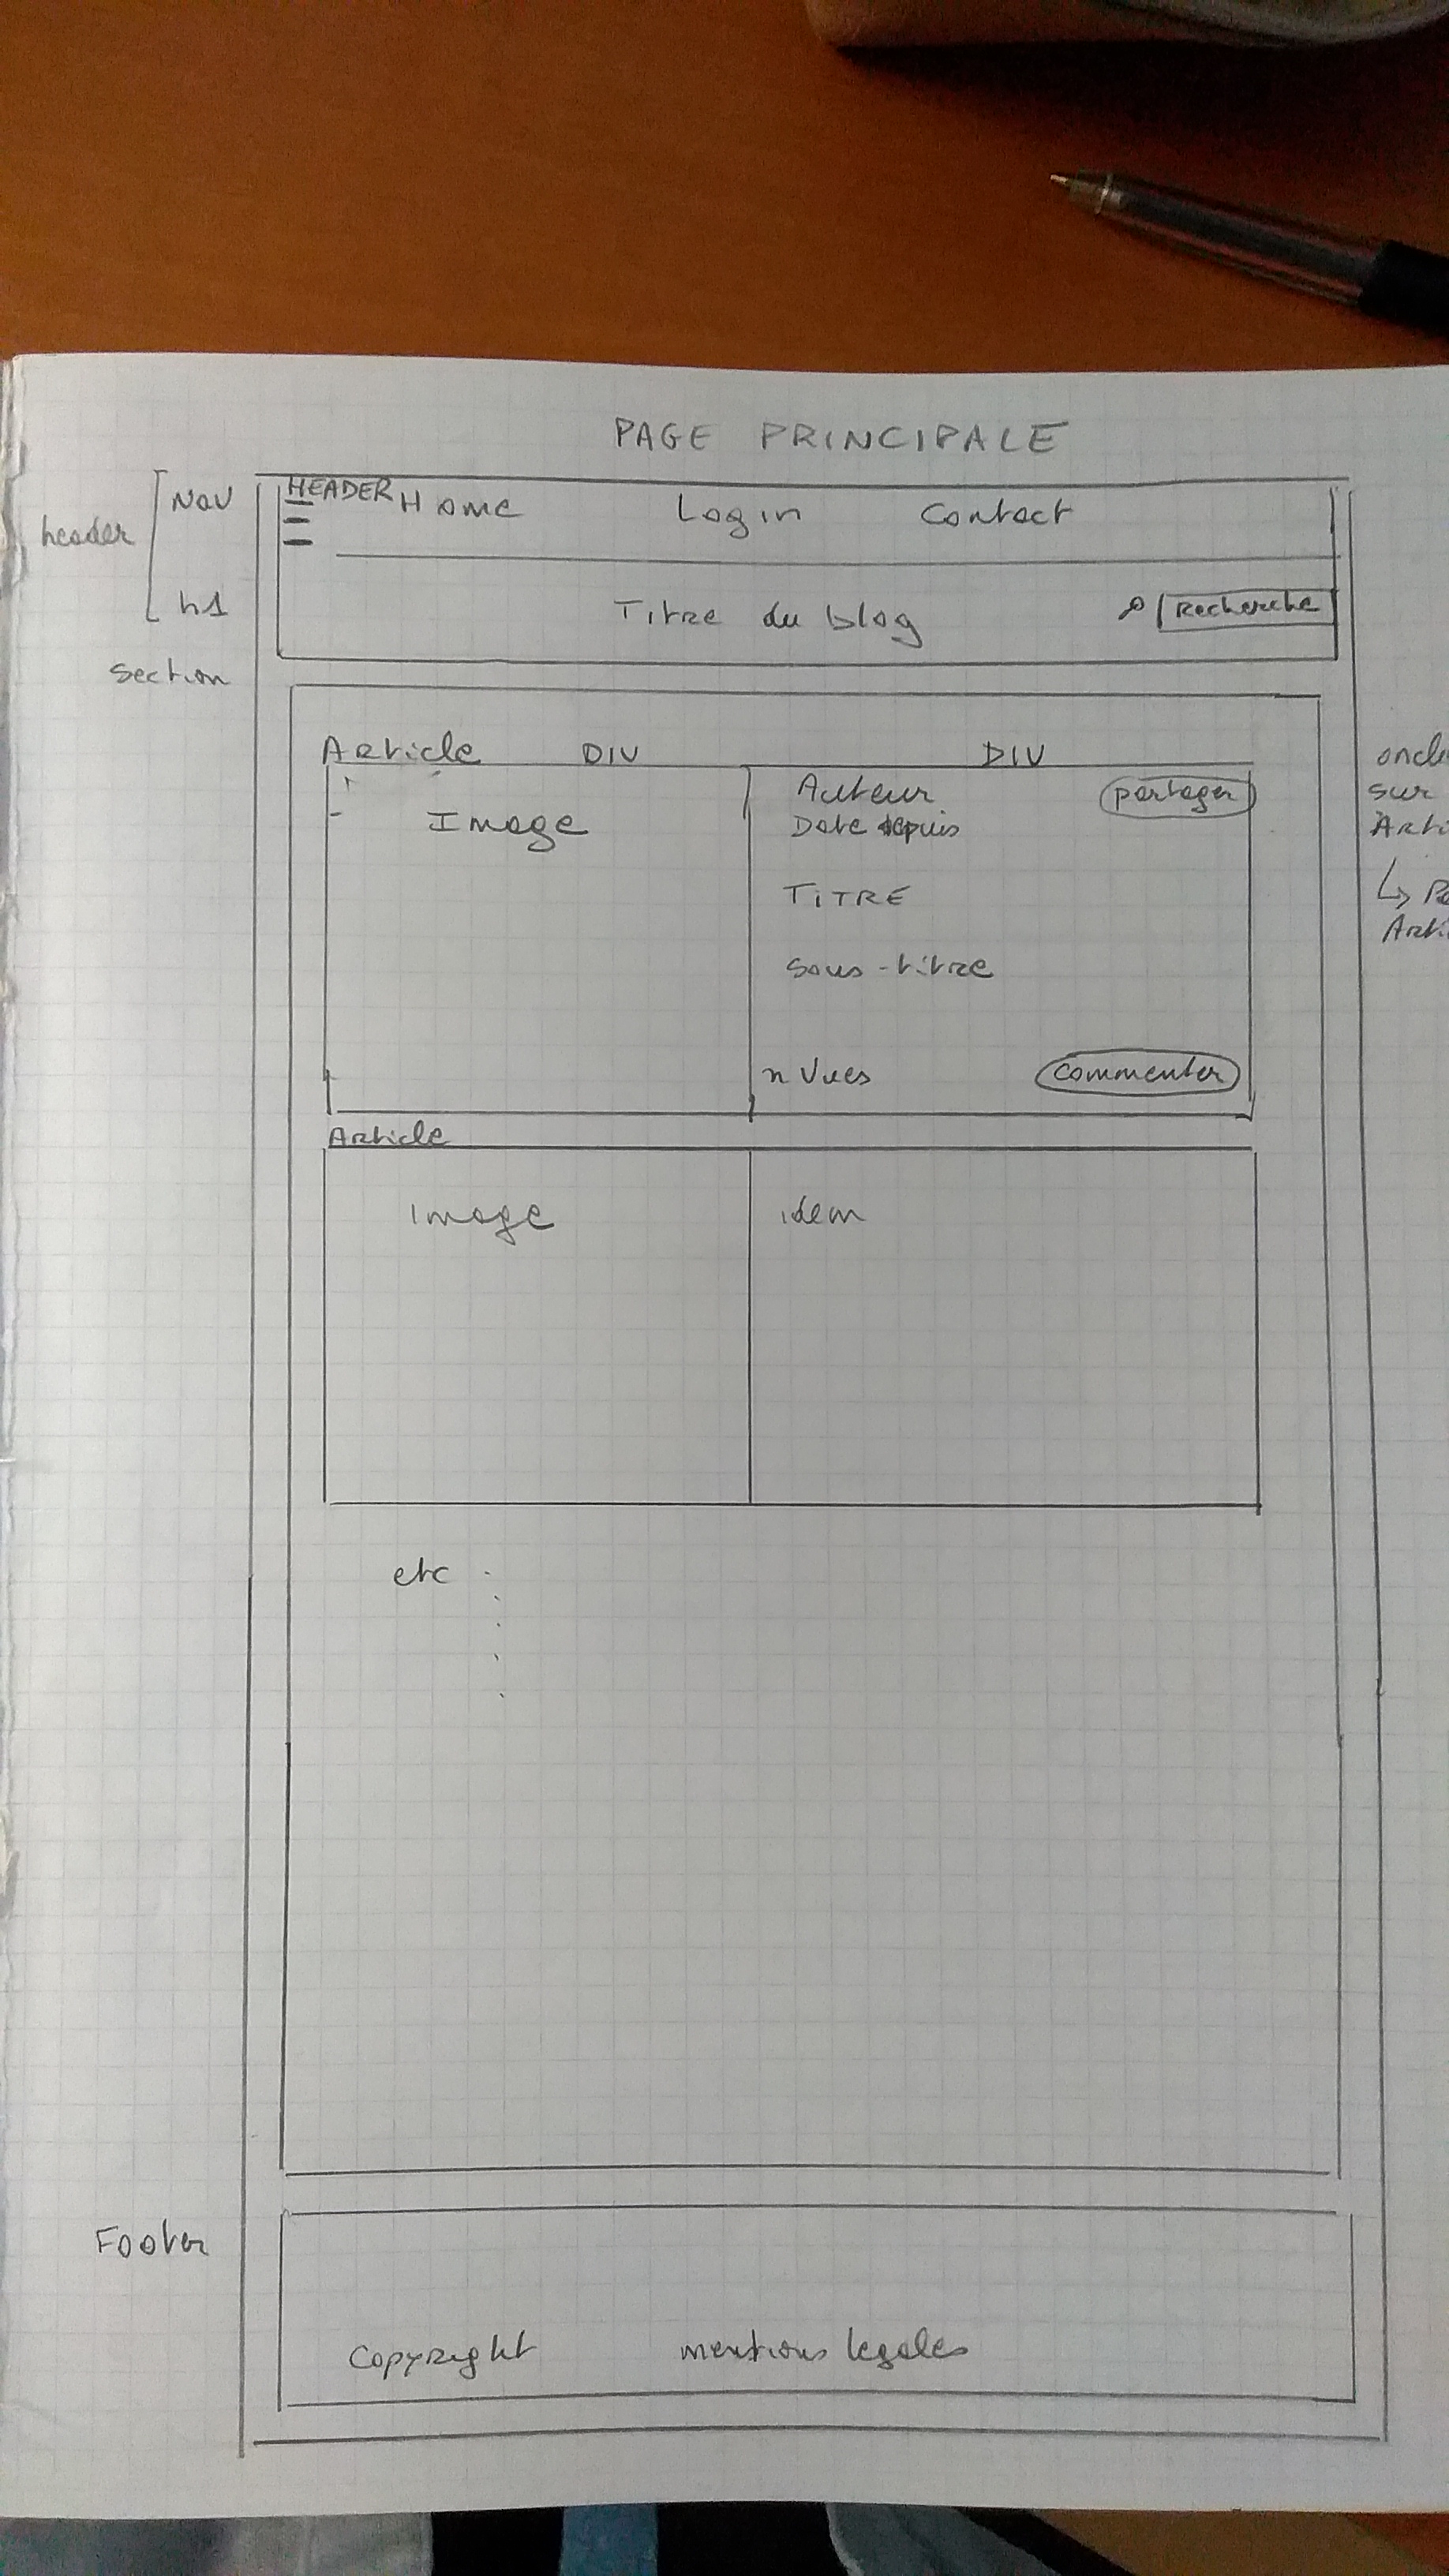 PAGE PRINCIPALE
Nav
header
h1
HEADER Home Login Contact
Titre du blog Recherche
Section
Article DIV DIV
Image
Auteur partager
Date depuis
TITRE
Sous-titre
n Vues commenter
oncl
sur
Arti
Article
Image idem
etc
Footer
Copyright mentions legales